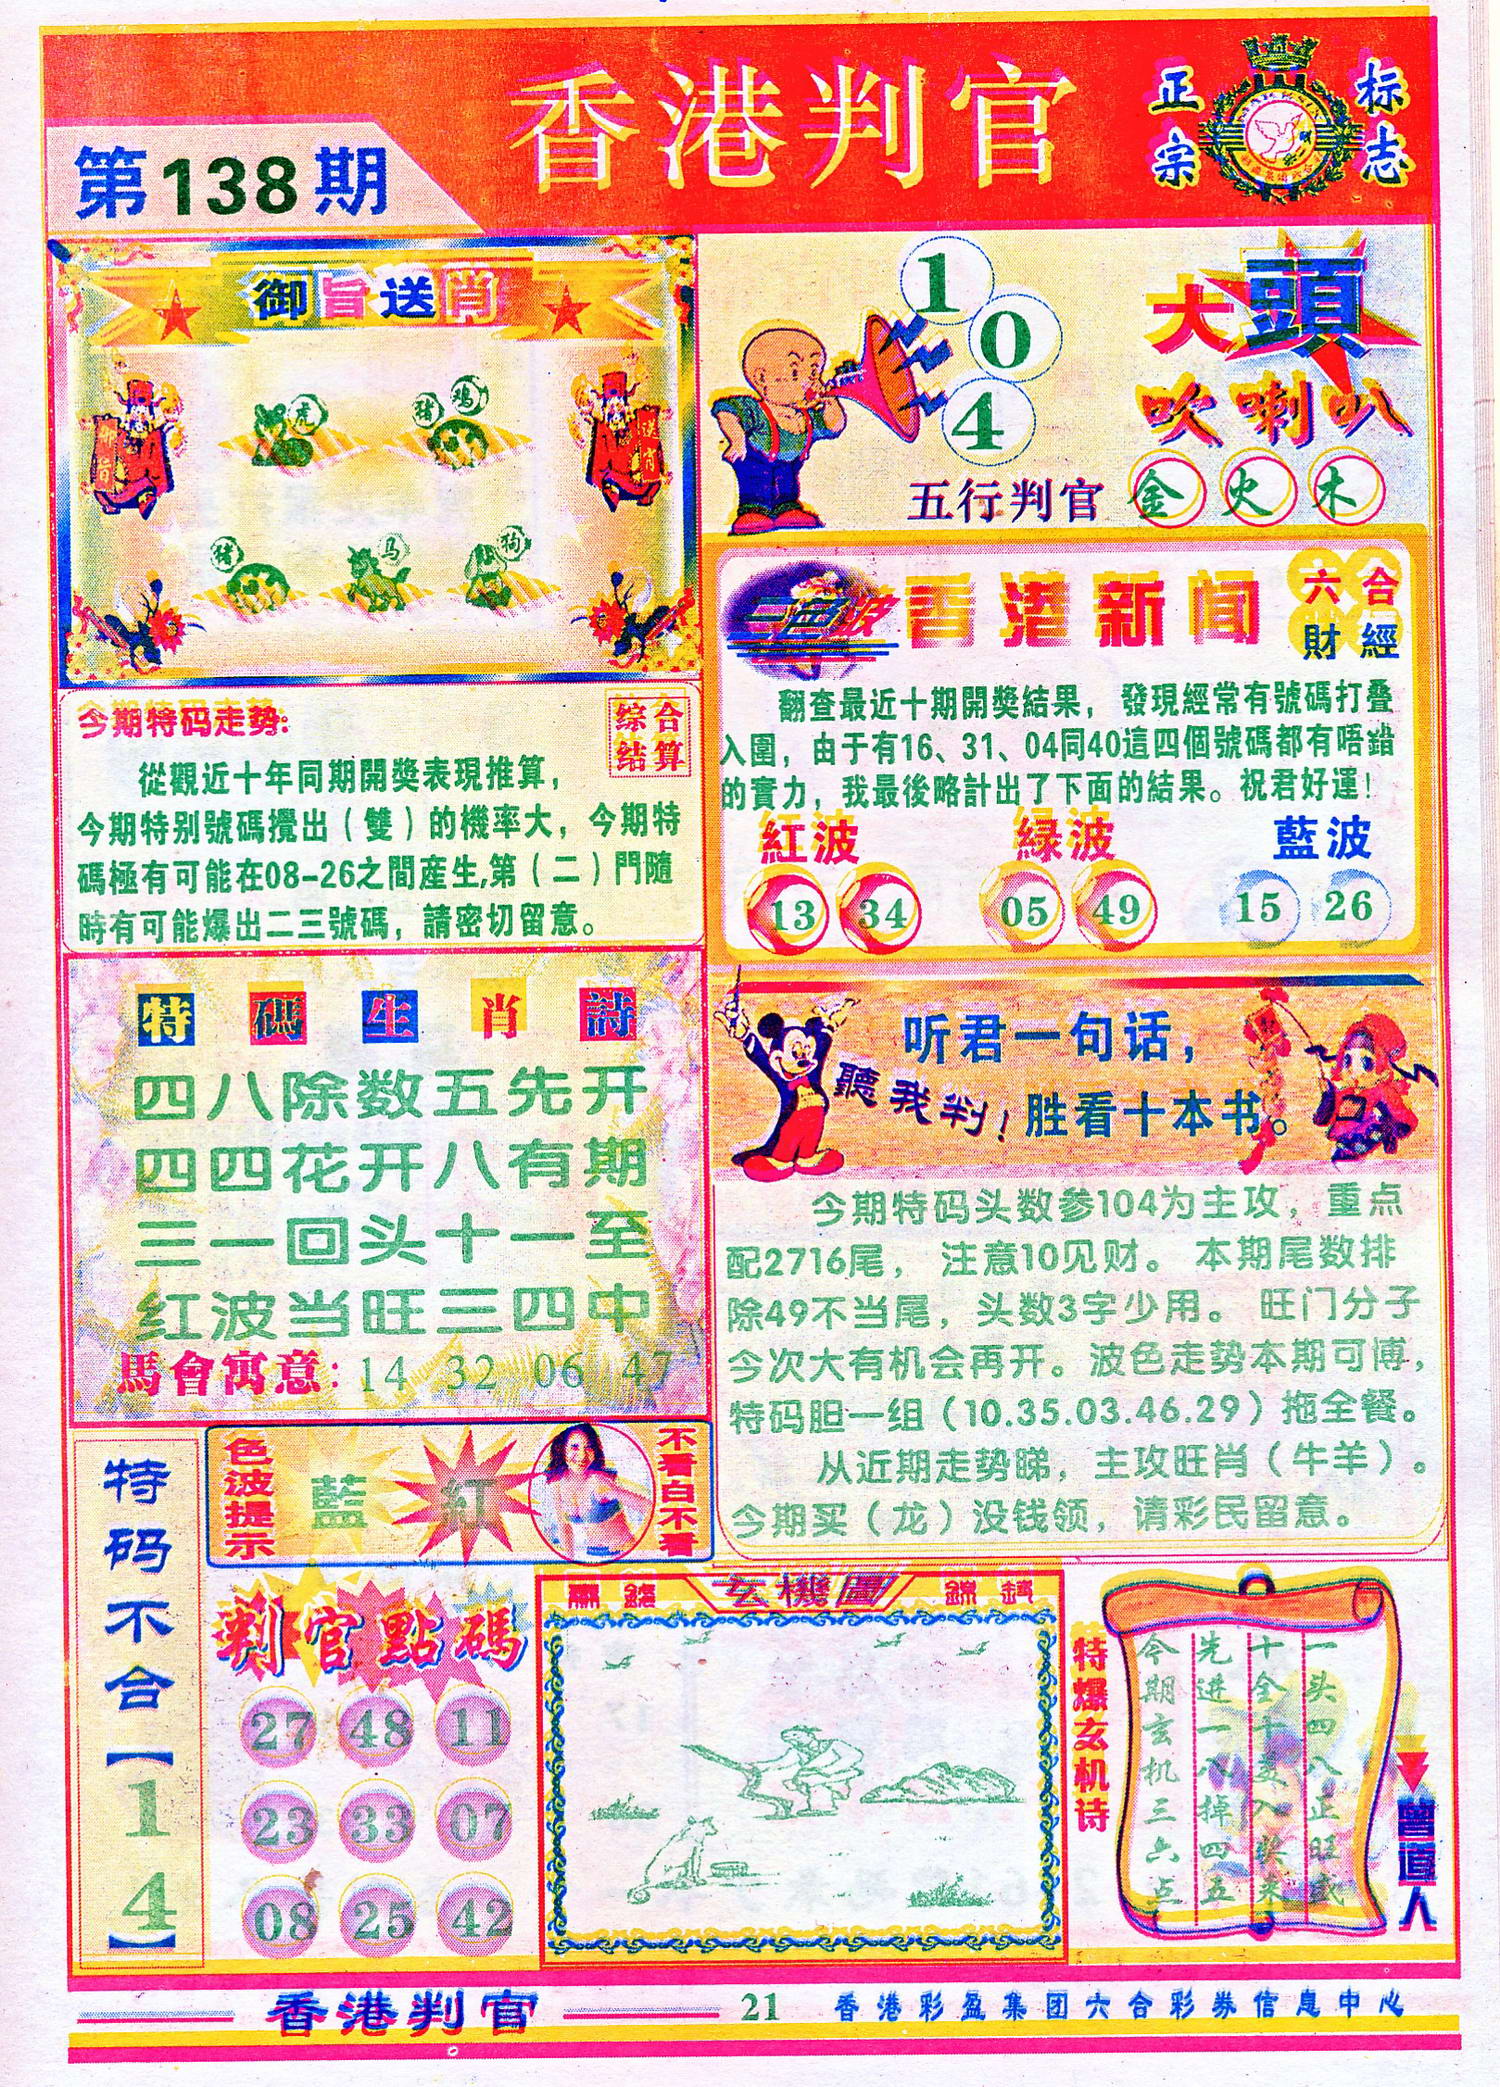 香港判官
正宗
标志
第138期
御旨送肖
虎
猪 鸡
御旨
送肖
猪
马
狗
1
0
4
大頭
吹喇叭
五行判官 金 火 木
三色波
香港新闻
六合
財經
翻查最近十期開獎結果，發現經常有號碼打叠
入圍，由于有16、31、04同40這四個號碼都有唔錯
的實力，我最後略計出了下面的結果。祝君好運！
紅波 緑波 藍波
13 34 05 49 15 26
今期特码走势:
综合
结算
從觀近十年同期開獎表現推算，
今期特别號碼攪出（雙）的機率大，今期特
碼極有可能在08-26之間産生,第（二）門隨
時有可能爆出二三號碼，請密切留意。
特碼生肖詩
四八除数五先开
四四花开八有期
三一回头十一至
红波当旺三四中
馬會寓意：14 32 06 47
听君一句话，
聽我判！
胜看十本书。
今期特码头数参104为主攻，重点
配2716尾，注意10见财。本期尾数排
除49不当尾，头数3字少用。旺门分子
今次大有机会再开。波色走势本期可博，
特码胆一组（10.35.03.46.29）拖全餐。
从近期走势睇，主攻旺肖（牛羊）。
今期买（龙）没钱领，请彩民留意。
特码不合【14】
色波提示
藍 紅
不看白不看
判官點碼
27 48 11
23 33 07
08 25 42
玄機圖
特爆玄机诗
一头四八正旺盛
先进一八掉四五
今期玄机三六点
曾道人
香港判官
21
香港彩盈集团六合彩券信息中心